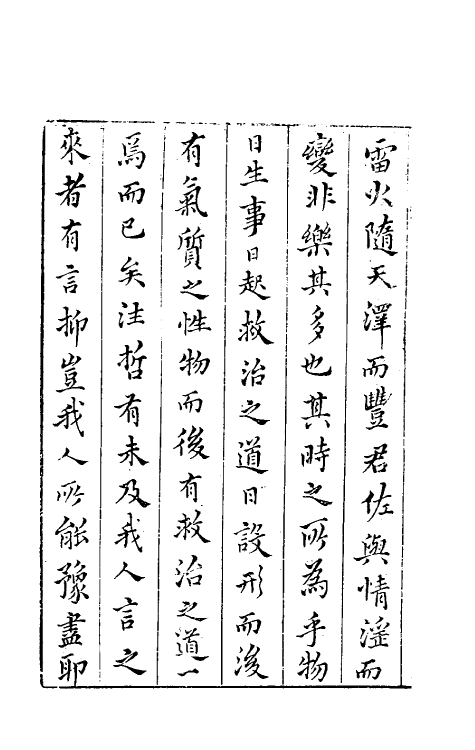 雷火隨天澤而豐君佐與情滛而
變非樂其多也其時之所為乎物
日生事日起救治之道日設形而後
有氣質之性物而後有救治之道一
焉而已矣往哲有未及我人言之
來者有言抑豈我人所能豫盡耶